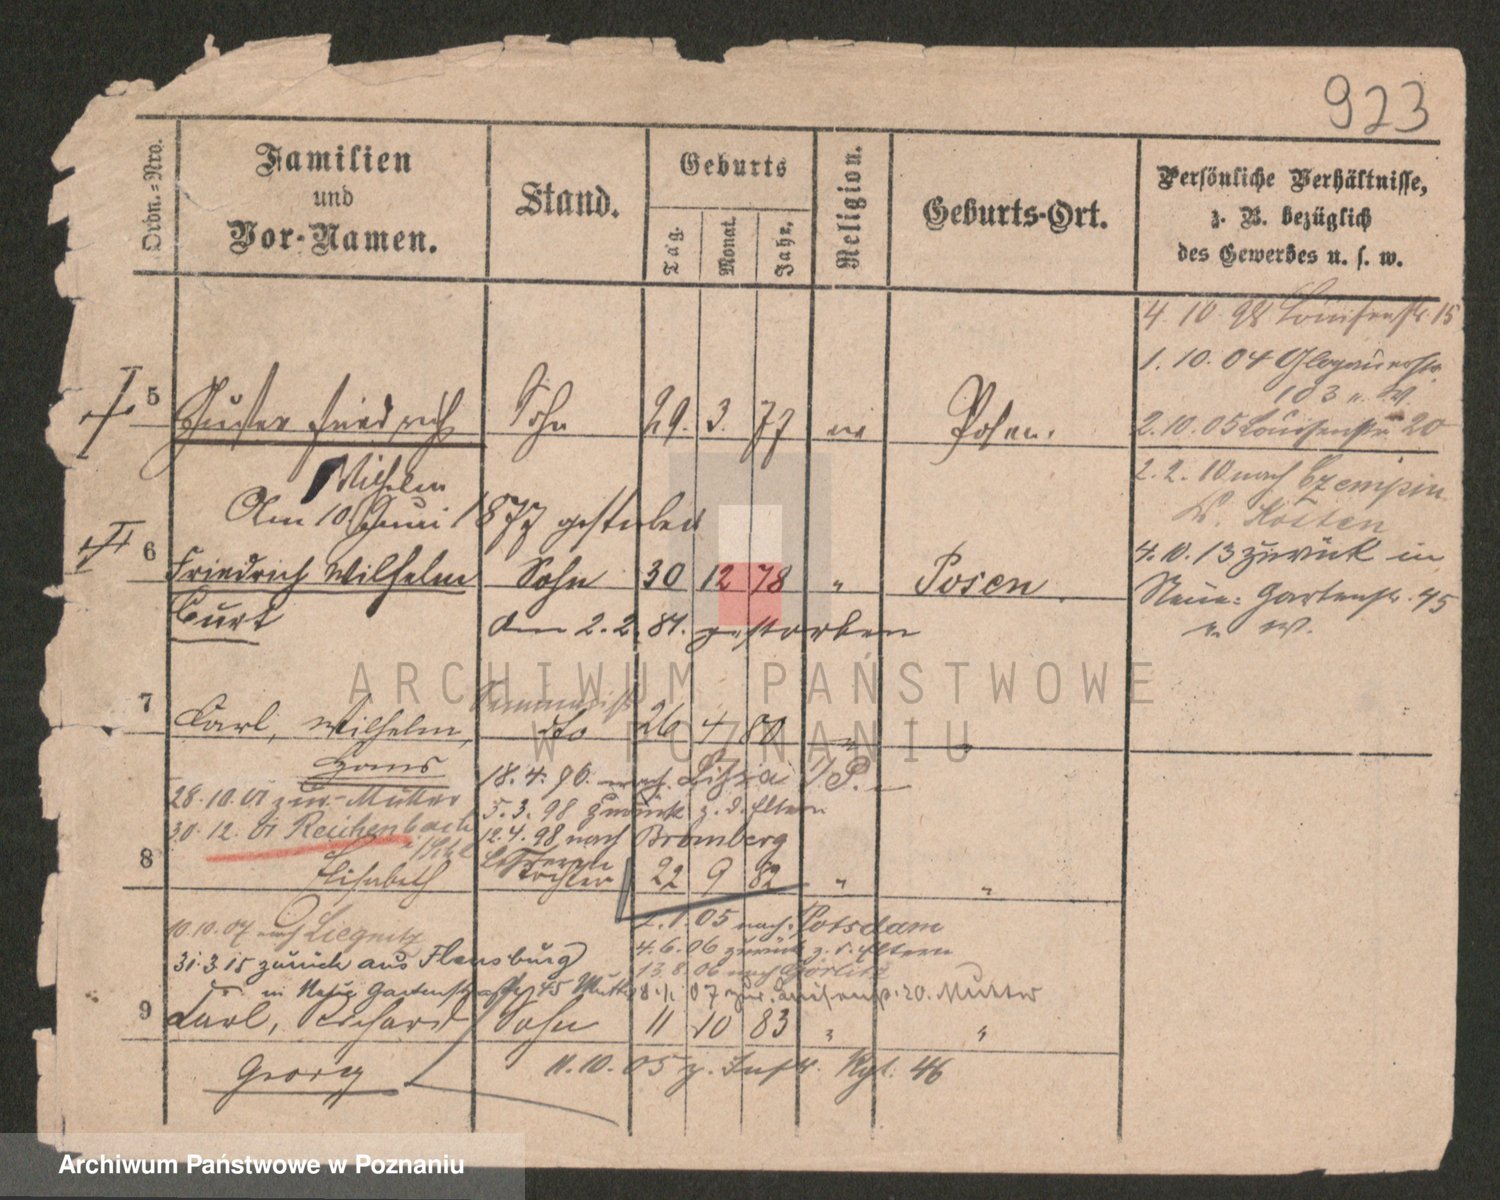 923
Ordn.=Nro.
Familien
und
Vor-Namen.
Stand.
Geburts
Tag.
Monat.
Jahr.
Religion.
Geburts-Ort.
Persönliche Verhältnisse,
z. B. bezüglich
des Gewerbes u. s. w.
4. 10. 98 Louisenstr. 15
1. 10. 04 Glogauerstr.
103 b. W.
2. 10. 05 Louisenstr. 20
2. 2. 10 nach Czempin
Kr. Kosten
4. 10. 13 zurück in
Neue Gartenstr. 45
b. W.
† I 5 Gustav Friedrich Sohn 29. 3. 77 Posen.
Wilhelm
Am 10. Juni 1877 gestorben
† II 6 Friedrich Wilhelm Sohn 30 12 78 " Posen.
Curt am 2. 2. 81. gestorben
7 Carl, Wilhelm, do 26 4 80 " "
Hans 18. 4. 96. nach Lissa i/P.
28. 10. 01 zur Mutter 5. 3. 98 zurück z. d. Eltern
30. 12. 01 Reichenbach 12. 4. 98 nach Bromberg
8 Elisabeth Tochter 22 9 82 " "
2. 1. 05 nach Potsdam
10. 10. 07 nach Liegnitz 4. 6. 06 zurück z. d. Eltern
31. 3. 15 zurück aus Flensburg 13. 8. 06 nach Görlitz
in Neue Gartenstraße 45 Mutter 8. 1. 07 zur. Luisenstr. 20. Mutter
9 Carl, Richard Sohn 11 10 83 " "
Georg 11. 10. 05 z. Inftr. Rgt. 46
ARCHIWUM PAŃSTWOWE
W POZNANIU
Archiwum Państwowe w Poznaniu